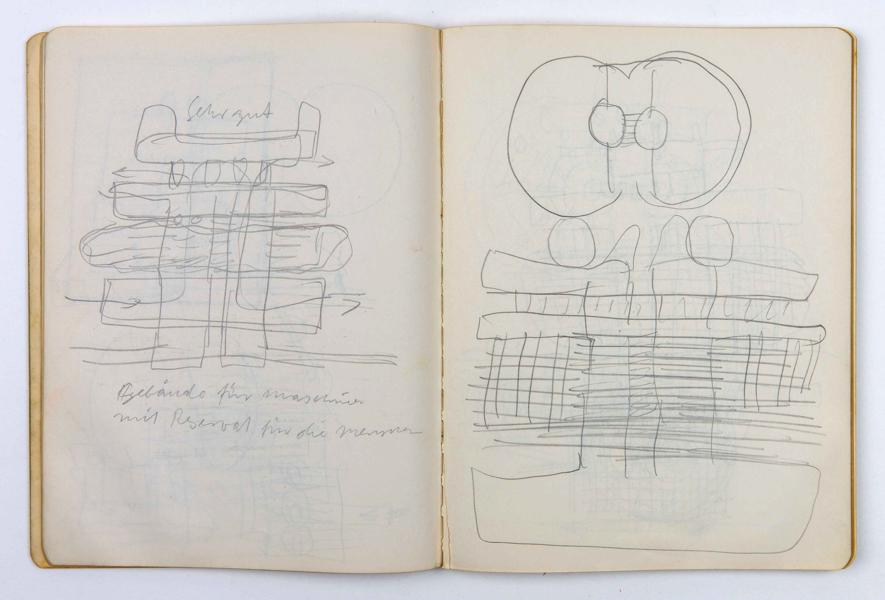 Sehr gut
Gebäude für maschinen
mit Reservat für die menschen